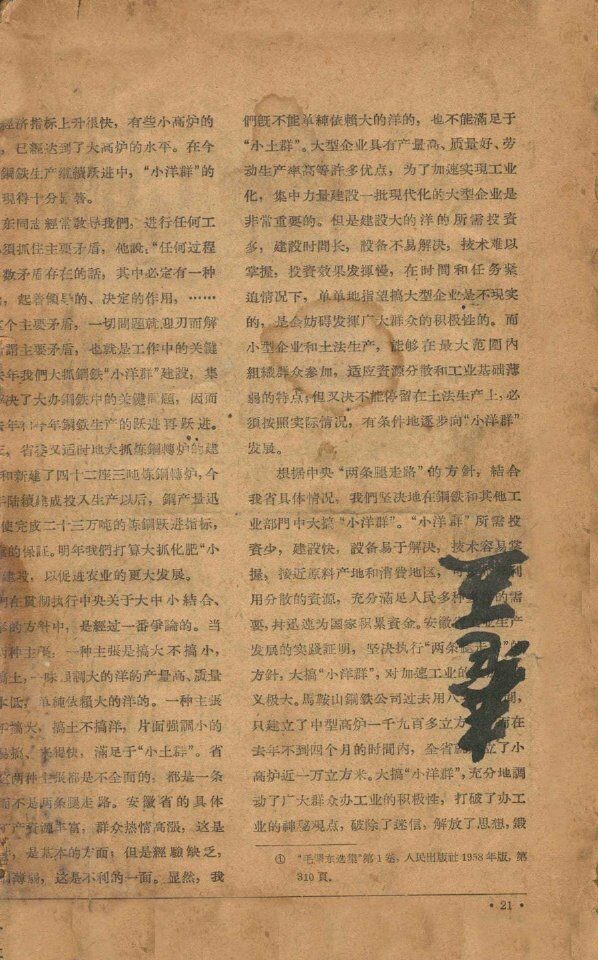 經济指标上升很快，有些小高炉的
，已經达到了大高炉的水平。在今
鋼鉄生产繼續跃进中，“小洋群”的
現得十分显著。
东同志經常敎导我們，进行任何工
必須抓住主要矛盾，他說：“任何过程
数矛盾存在的話，其中必定有一种
，起着領导的、决定的作用，……
个主要矛盾，一切問題就迎刃而解
謂主要矛盾，也就是工作中的关鍵
年我們大抓鋼鉄“小洋群”建設，集
决了大办鋼鉄中的关鍵問題，因而
年和今年鋼鉄生产的跃进再跃进。
，省委又适时地大抓炼鋼轉炉的建
和新建了四十二座三吨炼鋼轉炉，今
陆續建成投入生产以后，鋼产量迅
使完成二十三万吨的炼鋼跃进指标，
的保証。明年我們打算大抓化肥“小
建設，以促进农业的更大发展。
們在貫彻执行中央关于大中小結合、
的方針中，是經过一番爭論的。当
两种主張，一种主張是搞大不搞小，
土，一味强調大的洋的产量高、质量
本低，单純依賴大的洋的。一种主張
不搞大，搞土不搞洋，片面强調小的
易搞、来得快，滿足于“小土群”。省
这两种主張都是不全面的，都是一条
而不是两条腿走路。安徽省的具体
矿产資源丰富，群众热情高漲，这是
，是基本的方面；但是經驗缺乏，
薄弱，这是不利的一面。显然，我
們旣不能单純依賴大的洋的，也不能滿足于
“小土群”。大型企业具有产量高、质量好、劳
动生产率高等許多优点，为了加速实現工业
化，集中力量建設一批現代化的大型企业是
非常重要的。但是建設大的洋的所需投資
多，建設时間长，設备不易解决，技术难以
掌握，投資效果发揮慢，在时間和任务紧
迫情况下，单单地指望搞大型企业是不現实
的，是会妨碍发揮广大群众的积极性的。而
小型企业和土法生产，能够在最大范圍內
組織群众参加，适应資源分散和工业基础薄
弱的特点，但又决不能停留在土法生产上，必
須按照实际情况，有条件地逐步向“小洋群”
发展。
根据中央“两条腿走路”的方針，結合
我省具体情况，我們坚决地在鋼鉄和其他工
业部門中大搞“小洋群”。“小洋群”所需投
資少，建設快，設备易于解决，技术容易掌
握，接近原料产地和消費地区，可利
用分散的資源，充分滿足人民多种的需
要，幷迅速为国家积累資金。安徽业生产
发展的实践証明，坚决执行“两条腿走”的
方針，大搞“小洋群”，对加速工业的意
义极大。馬鞍山鋼鉄公司过去用八，
只建立了中型高炉一千九百多立方，而在
去年不到四个月的时間內，全省就建立了小
高炉近一万立方米。大搞“小洋群”，充分地調
动了广大群众办工业的积极性，打破了办工
业的神秘观点，破除了迷信，解放了思想，鍛
① “毛澤东选集”第1卷，人民出版社1958年版，第
310頁。
• 21 •